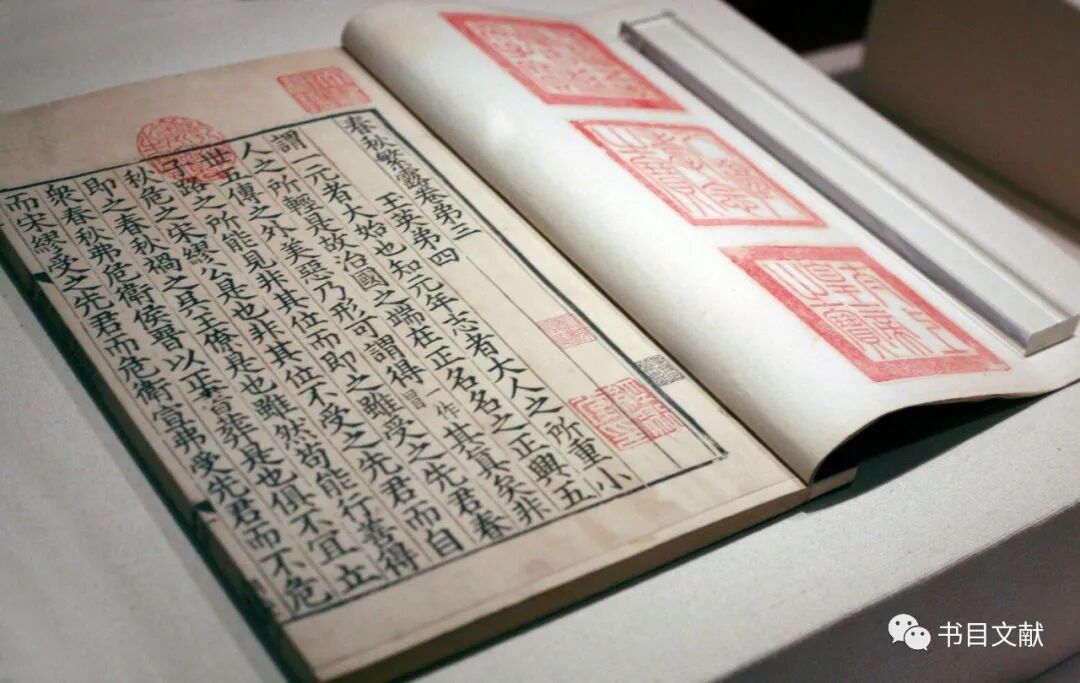 春秋繁露卷第三
王英第四
謂一元者大始也知元年志者大人之所重小
人之所輕是故治國之端在正名名之正興五
世五傳之外美惡乃形可謂得一作冒其真矣非
子路之所能見非其位而即之雖受之先君春
秋危之宋繆公是也非其位不受之先君而自
即之春秋禍之吳王僚是也雖然苟能行善得
衆春秋弗危衛侯晉以正書葬是也俱不宜立
而宋繆受之先君而危衛宣弗受先君而不危
书目文献